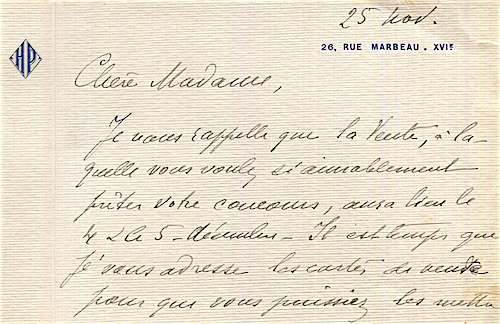 25 nov.
HP
26, RUE MARBEAU . XVIᵉ
Chère Madame,
Je vous rappelle que la Vente, à la-
quelle vous voulez si aimablement
prêter votre concours, aura lieu le
4 & le 5 - décembre - Il est temps que
j'vous adresse les cartes de vente
pour que vous puissiez les mettre